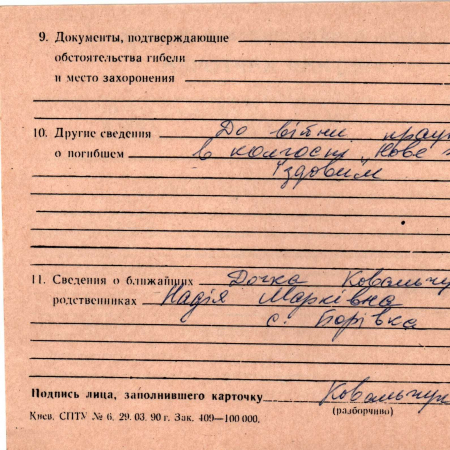 9. Документы, подтверждающие
обстоятельства гибели
и место захоронения
10. Другие сведения До війни
о погибшем в колгоспі „Нове
їздовим
11. Сведения о ближайших Дочка Ковальчу
родственниках Надія Марківна
с. Борівка
Подпись лица, заполнившего карточку Ковальчук
(разборчиво)
Киев. СПТУ № 6. 29. 03. 90 г. Зак. 409—100 000.